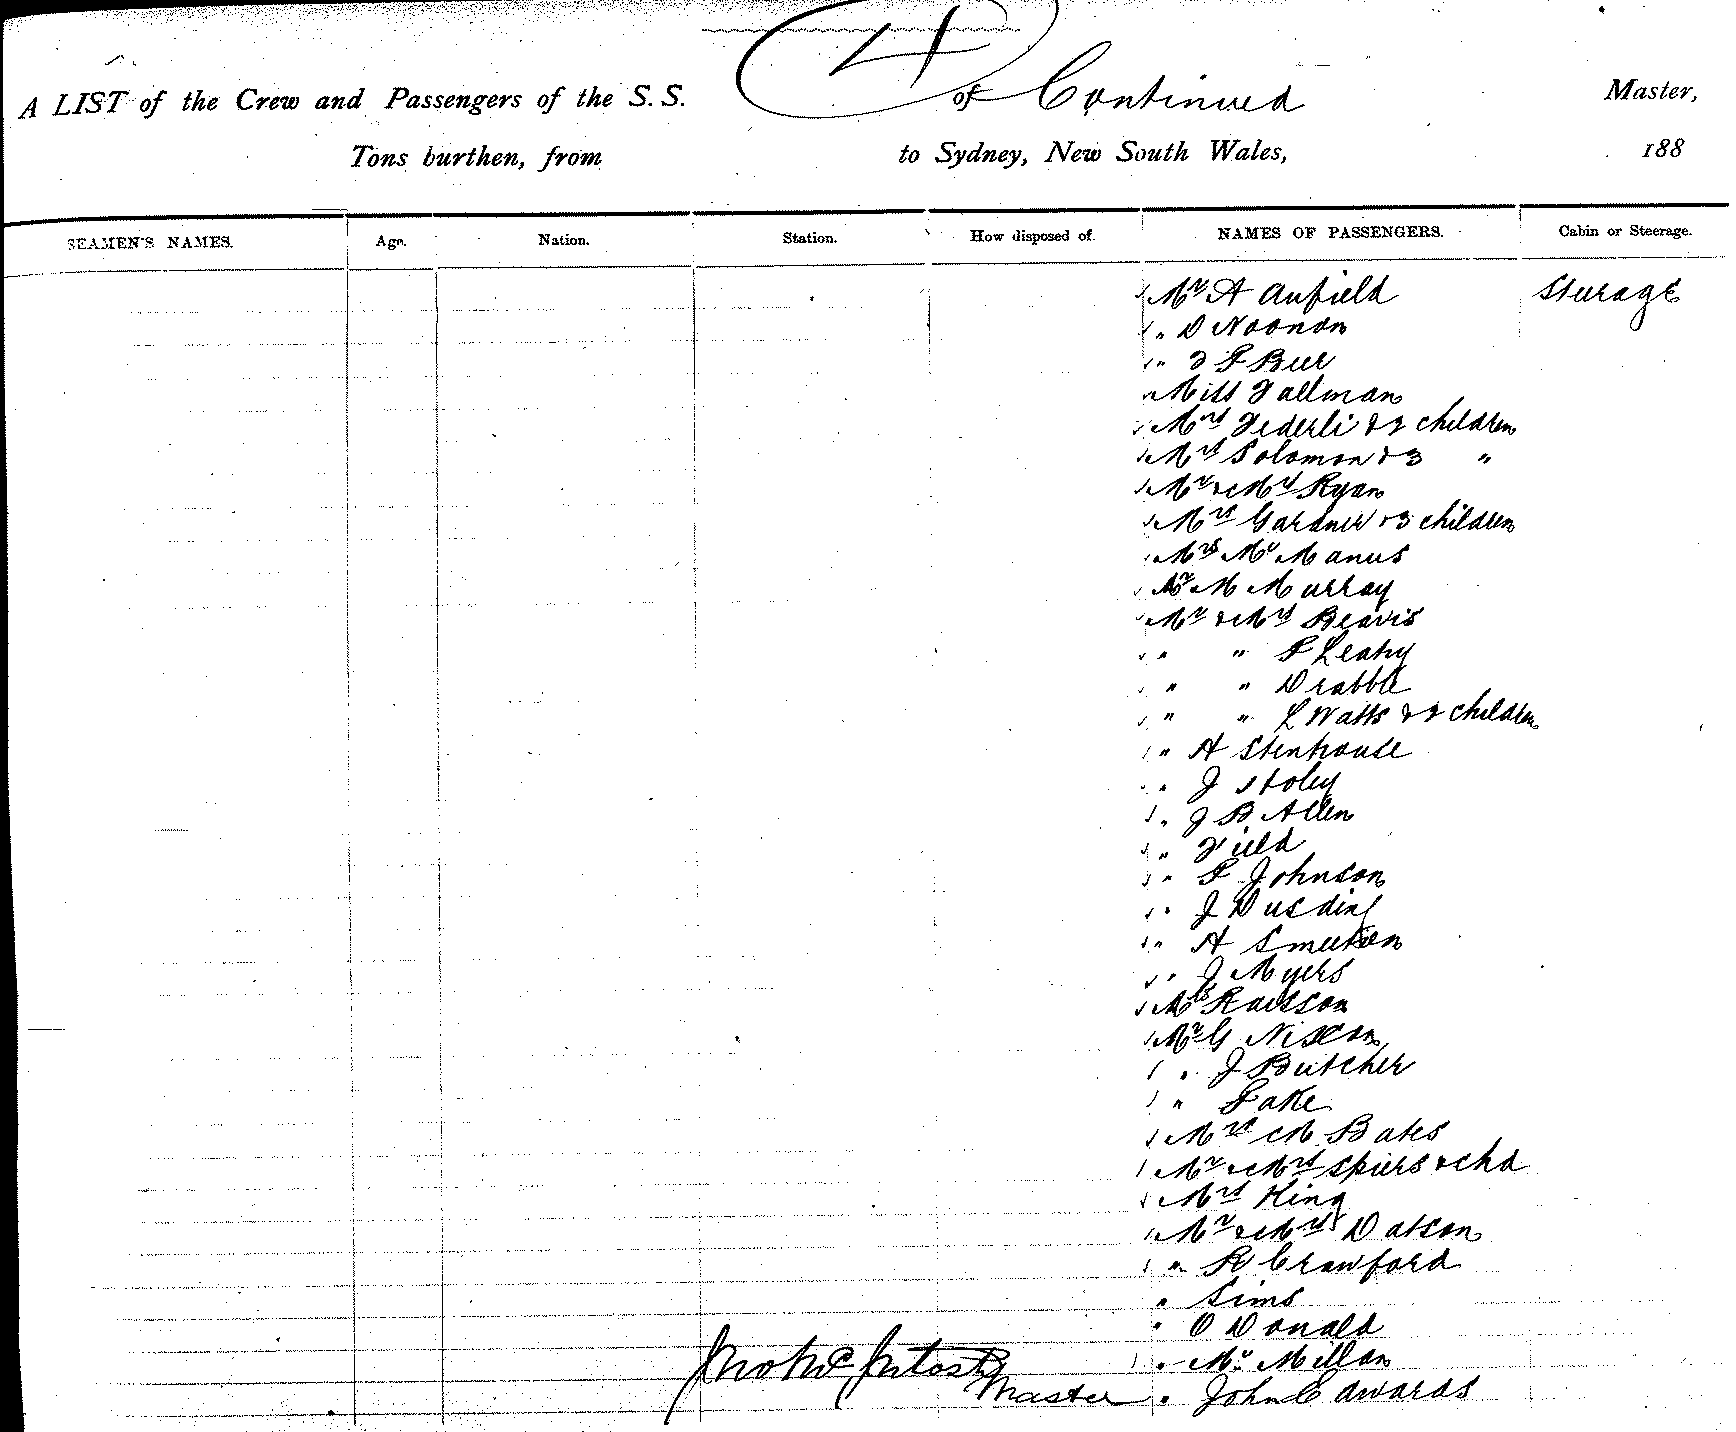 4
A LIST of the Crew and Passengers of the S. S. of Continued Master,
Tons burthen, from to Sydney, New South Wales, 188
SEAMEN'S NAMES. Age. Nation. Station. How disposed of. NAMES OF PASSENGERS. Cabin or Steerage.
Mr A Anfield Sturage
" D Noonan
" J F Beer
Miss Tallman
Mrs Federli & 2 children
Mrs Solomon & 3 "
Mr & Mrs Ryan
Mrs Gardner & 3 children
Mrs Mc Manus
Mr M Murray
Mr & Mrs Beavis
" " P Leahy
" " Drabble
" " L Watts & 2 children
" A Stenhouse
" J Stoley
" J B Allen
" Field
" F Johnson
" J
" A
" J Myers
Mrs
Mr G Nixon
" J Butcher
" Fake
Mrs M Bates
Mr & Mrs Spiers & chd
Mrs King
Mr & Mrs Watson
" R Crawford
" Sims
" O Donald
" Mc Millan
Jno McIntosh
Master " John Edwards